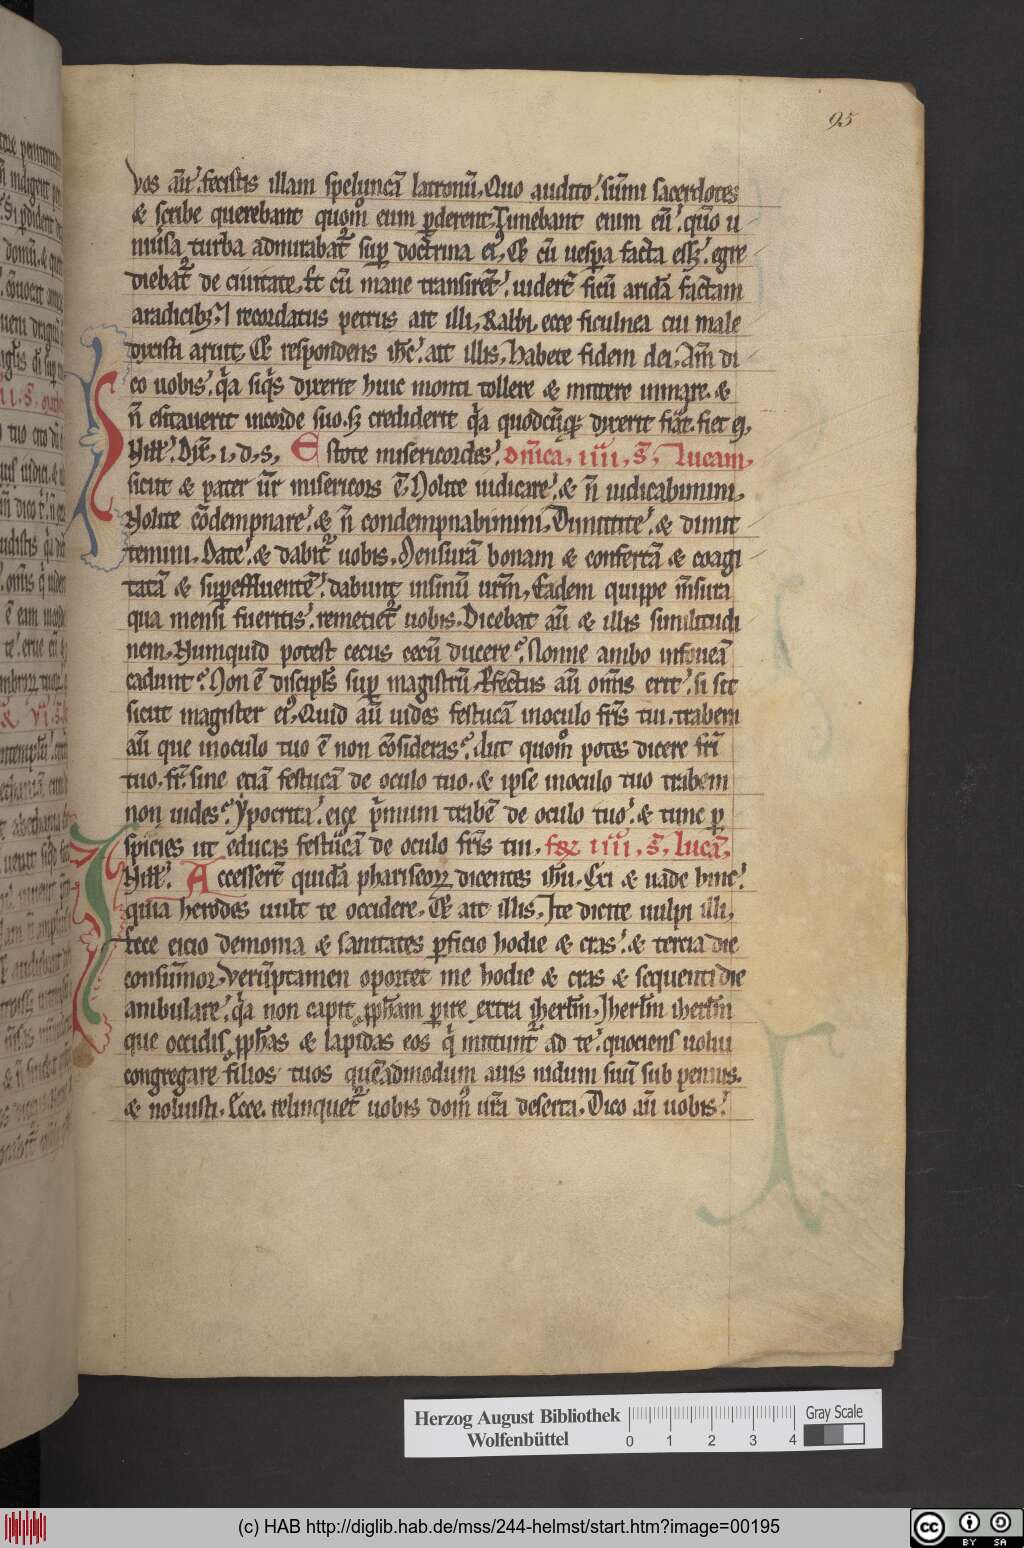 95
vos aut̄. fecistis illam speluncā latronū. Quo audito. sūmi sacerdotes
& scribe querebant quom̊ eum ꝑderent. Timebant enim eū. quō u
niūsa turba admirabat᷑ suꝑ doctrina ei᷒. Et cū uespa facta ess&. egre
diebat᷑ de ciuitate. Et cū mane transirēt. uidert̄ ficū aridā factam
aradicib;. Et recordatus petrus ait illi. Rabbi. ecce ficulnea cui male
dixisti aruit. Et respondens ih̄c. ait illis. Habete fidem dei. Am̄ di
co uobis. q̄a siq̄s dixerit huic monti tollere & mittere inmare. &
n̄ esitauerit incorde suo. s; crediderit q̄a quodcūq; dixerit fiat. fiet ei.
In ill̄. Dix̄. i. d. s. Estote misericordes. dn̄ica. iiii. s̄. Lucam.
sicut & pater ur̄ misericors ē. Nolite iudicare. & n̄ iudicabimini.
Nolite cōdempnare. & n̄ condempnabimini. Dimittite. & dimit
temini. Date. & dabit᷑ uobis. Mensurā bonam & confertā & coagi
tatā & suꝑeffluentē. dabunt insinū urm̄. Eadem quippe m̄sura
qua mensi fueritis. remetiet᷑ uobis. Dicebat aū & illis similitudi
nem. Numquid potest cecus cecū ducere? Nonne ambo infoueā
cadunt? Non ē discipls̄ suꝑ magistrū. Ꝑfectus aū om̄is erit. si sit
sicut magister ei᷒. Quid aū uides festucā inoculo fr̄is tui. trabem
aū que inoculo tuo ē non cōsideras? Aut quom̊ potes dicere fr̄i
tuo. fr̄. sine eiciā festucā de oculo tuo. & ipse inoculo tuo trabem
non uides? Ypocrita. eice p̄mum trabē de oculo tuo. & tunc ꝑ
spicies ut educas festucā de oculo fr̄is tui. fer̄ iiii. s̄. lucā.
In ill̄. Accessert̄ quidā phariseoꝝ dicentes ih̄u. Exi & uade hinc.
quia herodes uult te occidere. Et ait illis. Ite dicite uulpi illi.
Ecce eicio demonia & sanitates ꝑficio hodie & cras. & tercia die
consūmor. Verūptamen oportet me hodie & cras & sequenti die
ambulare. q̄a non capit ꝓph̄am ꝑire extra iherlm̄. Iherlm̄ iherlm̄
que occidis ꝓph̄as & lapidas eos q̄ mittunt᷑ ad te. quociens uolui
congregare filios tuos quēadmodum auis nidum suū sub pennis.
& noluisti. Ecce relinquet᷑ uobis dom᷒ ur̄a deserta. Dico aū uobis.
Herzog August Bibliothek
Wolfenbüttel
0 1 2 3 4
Gray Scale
(c) HAB http://diglib.hab.de/mss/244-helmst/start.htm?image=00195
cc BY SA